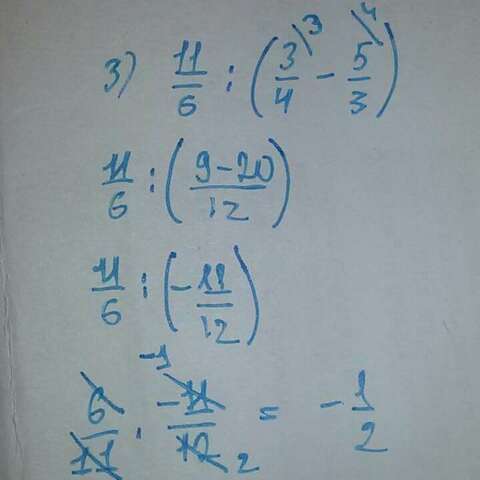 3) 11/6 : (3/4 ³ - 5/3 ⁴)
11/6 : (9-20/12)
11/6 : (-11/12)
6/11 · -11/12 -1 2 = -1/2